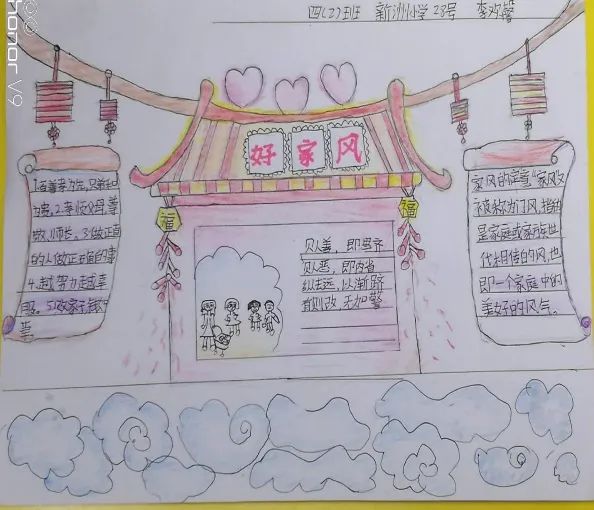 四(2)班 新洲小学 23号 李欢馨
honor V9
好家风
福
福
1.百善孝为先,兄弟和
为贵,2.孝悌父母,尊
敬师长。3.做正直
的人做正确的事
4.越努力越幸
服。5.
见人善,即思齐
见人恶,即内省
纵去远,以渐跻
有则改,无加警
家风的定意"家风又
被称为门风,指的
是家庭或家族世
代相传的风也
即一个家庭中的
美好的风气。